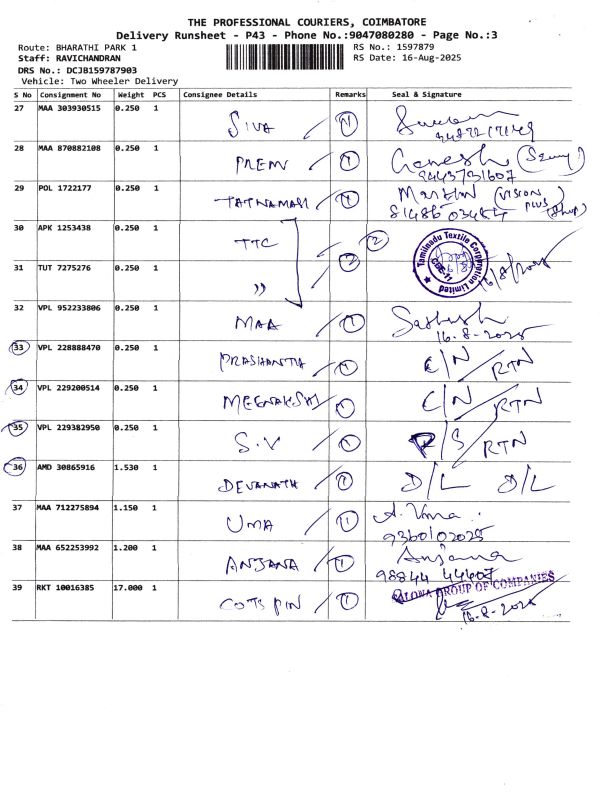 THE PROFESSIONAL COURIERS, COIMBATORE
Delivery Runsheet - P43 - Phone No.:9047080280 - Page No.:3
Route: BHARATHI PARK 1 RS No.: 1597879
Staff: RAVICHANDRAN RS Date: 16-Aug-2025
DRS No.: DCJB159787903
Vehicle: Two Wheeler Delivery
S No Consignment No Weight PCS Consignee Details Remarks Seal & Signature
27 MAA 303930515 0.250 1
SIVA 1
28 MAA 870882108 0.250 1
PREM 1 Ganesh
9443731607
29 POL 1722177 0.250 1
1 (VISION PLUS) (Shop)
30 APK 1253438 0.250 1
TTC 2 Tamilnadu Textile Corporation Limited
31 TUT 7275276 0.250 1
" 2 16/8/2025
32 VPL 952233806 0.250 1
MAA 1 Sathish
16-8-2025
33 VPL 228888470 0.250 1
PRASHANTH 1 C/N RTN
34 VPL 229200514 0.250 1
MEENAKSHI 1 C/N RTN
35 VPL 229382950 0.250 1
S.V 1 R/S RTN
36 AMD 30865916 1.530 1
DEVANATH 1 D/L D/L
37 MAA 712275894 1.150 1
UMA 11 A. Uma
9360102025
38 MAA 652253992 1.200 1
ANJANA 1 Anjana
98844 44607
39 RKT 10016385 17.000 1
COTS PIN 1 GROUP OF COMPANIES
16-8-2025